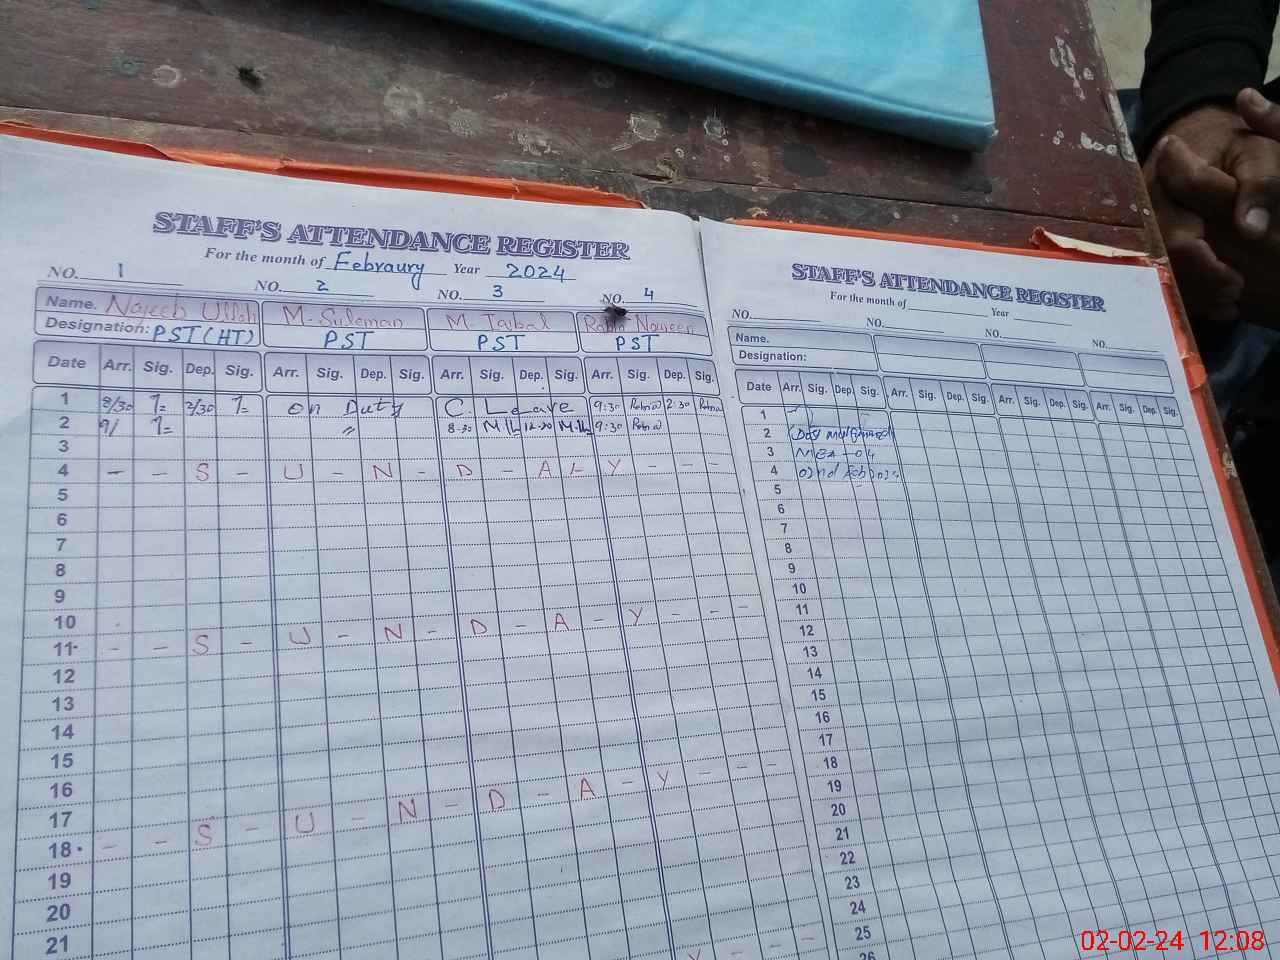 STAFF'S ATTENDANCE REGISTER
For the month of Febraury Year 2024
NO. 1 NO. 2 NO. 3 NO. 4
Name. Najeeb Ullah M. Suleman M. Iqbal Naureen
Designation: PST (HT) PST PST PST
Date Arr. Sig. Dep. Sig. Arr. Sig. Dep. Sig. Arr. Sig. Dep. Sig. Arr. Sig. Dep. Sig.
1 8/30 2/30 on Duty C. Leave 9:30 2:30
2 9/ " 8-30 12-30 9:30
3
4 - - S - U - N - D - A - Y - - -
5
6
7
8
9
10
11 - - S - U - N - D - A - Y - - -
12
13
14
15
16
17
18 - - S - U - N - D - A - Y - - -
19
20
21 Y - -
STAFF'S ATTENDANCE REGISTER
For the month of Year
NO. NO. NO. NO.
Name.
Designation:
Date Arr. Sig. Dep. Sig. Arr. Sig. Dep. Sig. Arr. Sig. Dep. Sig. Arr. Sig. Dep. Sig.
1
2
3
4
5
6
7
8
9
10
11
12
13
14
15
16
17
18
19
20
21
22
23
24
25
26
02-02-24 12:08